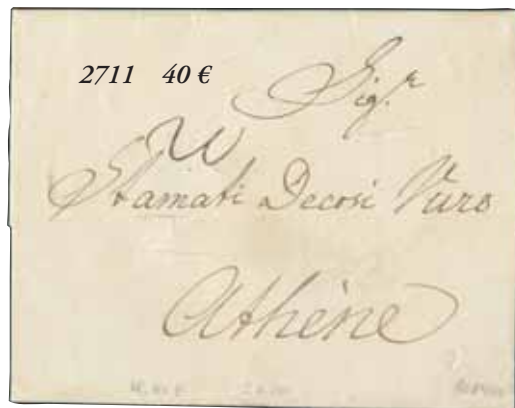 2711 40 €
Sig.r
Stamati Decosi Vuro
Athène